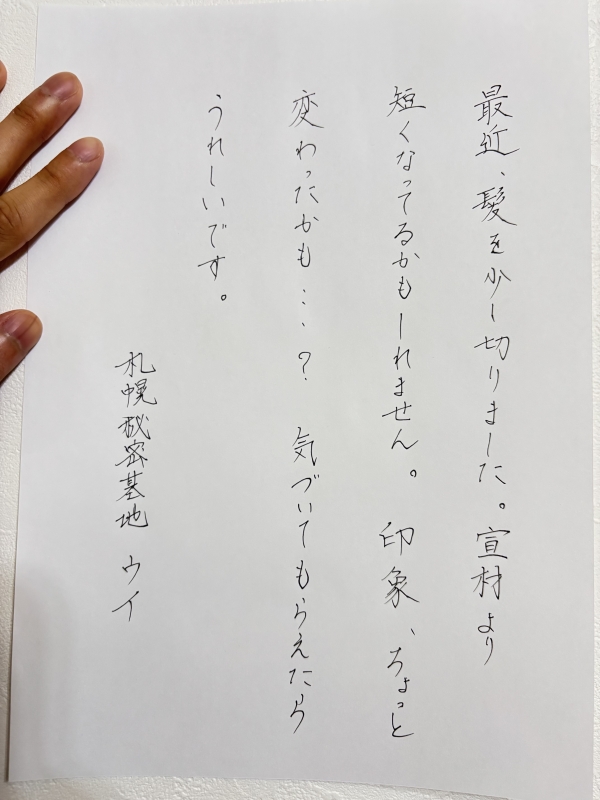 最近、髪を少し切りました。宣材より
短くなってるかもしれません。 印象、ちょっと
変わったかも…? 気づいてもらえたら
うれしいです。
札幌秘密基地 ウイ